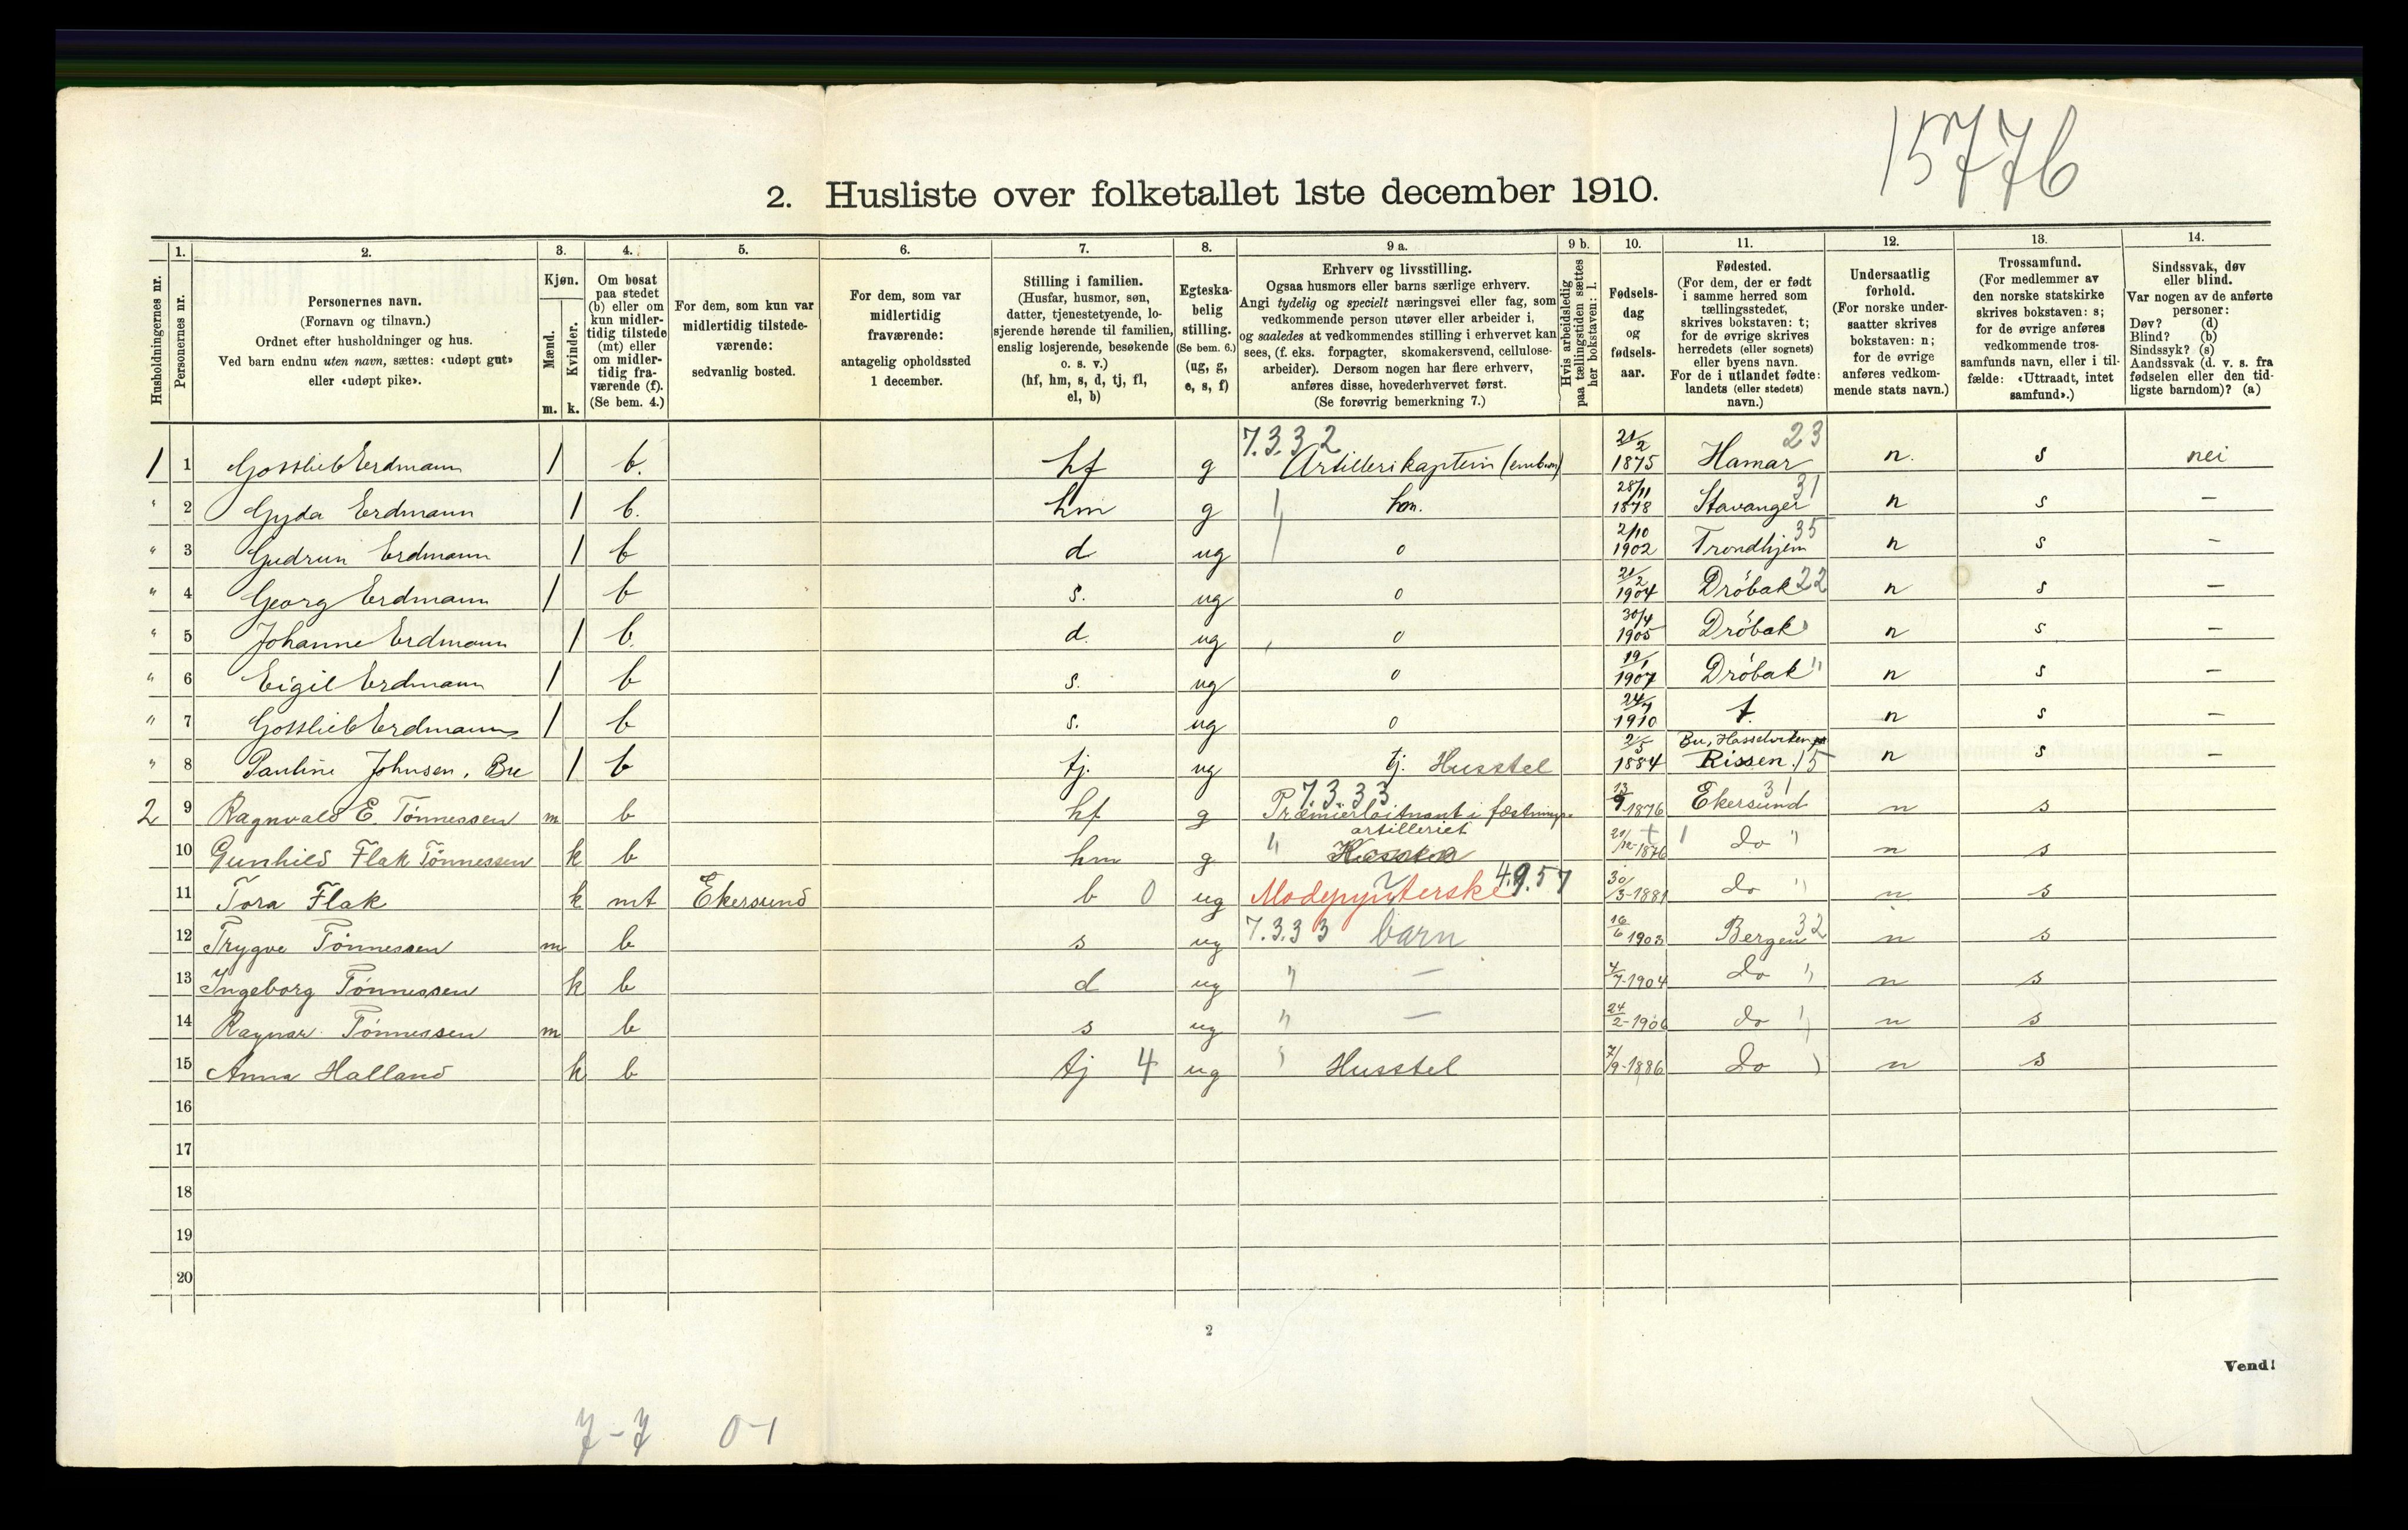 15776
2. Husliste over folketallet 1ste december 1910.
1. 2. 3. 4. 5. 6. 7. 8. 9 a. 9 b. 10. 11. 12. 13. 14.
Husholdningernes nr.
Personernes nr.
Personernes navn.
(Fornavn og tilnavn.)
Ordnet efter husholdninger og hus.
Ved barn endnu uten navn, sættes: «udøpt gut»
eller «udøpt pike».
Kjøn.
Mænd.
Kvinder.
m. k.
Om bosat
paa stedet
(b) eller om
kun midler-
tidig tilstede
(mt) eller
om midler-
tidig fra-
værende (f).
(Se bem. 4.)
For dem, som kun var
midlertidig tilstede-
værende:
sedvanlig bosted.
For dem, som var
midlertidig
fraværende:
antagelig opholdssted
1 december.
Stilling i familien.
(Husfar, husmor, søn,
datter, tjenestetyende, lo-
sjerende hørende til familien,
enslig losjerende, besøkende
o. s. v.)
(hf, hm, s, d, tj, fl,
el, b)
Egteska-
belig
stilling.
(Se bem. 6.)
(ug, g,
e, s, f)
Erhverv og livsstilling.
Ogsaa husmors eller barns særlige erhverv.
Angi tydelig og specielt næringsvei eller fag, som
vedkommende person utøver eller arbeider i,
og saaledes at vedkommendes stilling i erhvervet kan
sees, (f. eks. forpagter, skomakersvend, cellulose-
arbeider). Dersom nogen har flere erhverv,
anføres disse, hovederhvervet først.
(Se forøvrig bemerkning 7.)
Hvis arbeidsledig
paa tællingstiden sættes
her bokstaven: l.
Fødsels-
dag
og
fødsels-
aar.
Fødested.
(For dem, der er født
i samme herred som
tællingsstedet,
skrives bokstaven: t;
for de øvrige skrives
herredets (eller sognets)
eller byens navn.
For de i utlandet fødte:
landets (eller stedets)
navn.)
Undersaatlig
forhold.
(For norske under-
saatter skrives
bokstaven: n;
for de øvrige
anføres vedkom-
mende stats navn.)
Trossamfund.
(For medlemmer av
den norske statskirke
skrives bokstaven: s;
for de øvrige anføres
vedkommende tros-
samfunds navn, eller i til-
fælde: «Uttraadt, intet
samfund».)
Sindssvak, døv
eller blind.
Var nogen av de anførte
personer:
Døv? (d)
Blind? (b)
Sindssyk? (s)
Aandssvak (d. v. s. fra
fødselen eller den tid-
ligste barndom)? (a)
1 1 Gottlieb Erdmann 1 b. hf g 7.3.3 2 Artillerikaptein (embm) 21/2 1875 Hamar 23 n. s nei
" 2 Gyda Erdmann 1 b. hm g hm. 28/11 1878 Stavanger 31 n s –
" 3 Gudrun Erdmann 1 b d ug 0 2/10 1902 Trondhjem 35 n s –
" 4 Georg Erdmann 1 b s. ug 0 21/2 1904 Drøbak 22 n s –
" 5 Johanne Erdmann 1 b. d. ug 0 30/4 1905 Drøbak n s –
" 6 Eigil Erdmann 1 b s. ug 0 19/1 1907 Drøbak " n s –
" 7 Gottlieb Erdmann 1 b s. ug 0 24/7 1910 t. n s –
" 8 Pauline Johnsen, Bu 1 b tj. ug tj. Husstel 2/5 1884 Bu, Hasselviken Rissen 15 n s –
2 9 Ragnvald E. Tønnessen m b hf g 7333 Præmierløitnant i fæstnings- artilleriet 13/9 1876 Ekersund 31 n s
10 Gunhild Flak Tønnessen k b hm g " 21/12-1876 do " n s
11 Tora Flak k mt Ekersund b 0 ug Modepynterske 4.9.57 30/3-1881 do " n s
12 Trygve Tønnessen m b s ug 7.3.3 3 barn 16/6 1903 Bergen 32 n s
13 Ingeborg Tønnessen k b d ug " – 4/7-1904 do " n s
14 Ragnar Tønnessen m b s ug " – 24/2-1906 do " n s
15 Anna Halland k b tj 4 ug " Husstel 7/9-1886 do " n s
16
17
18
19
20
2
Vend!
7-7 0-1